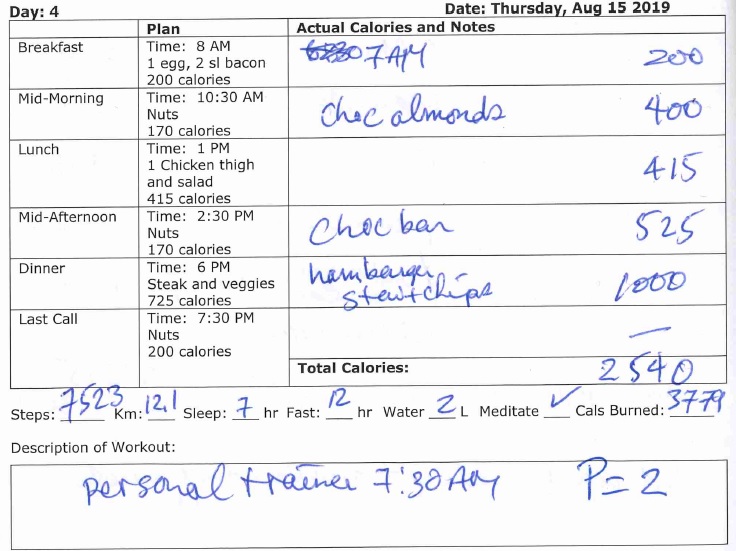 Day: 4 Date: Thursday, Aug 15 2019
Plan Actual Calories and Notes
Breakfast Time: 8 AM 7 AM 200
1 egg, 2 sl bacon
200 calories
Mid-Morning Time: 10:30 AM choc almonds 400
Nuts
170 calories
Lunch Time: 1 PM 415
1 Chicken thigh
and salad
415 calories
Mid-Afternoon Time: 2:30 PM choc bar 525
Nuts
170 calories
Dinner Time: 6 PM hamburger
Steak and veggies stew + chips 1000
725 calories
Last Call Time: 7:30 PM —
Nuts
200 calories
Total Calories: 2540
Steps: 7523 Km: 12,1 Sleep: 7 hr Fast: 12 hr Water 2 L Meditate ✓ Cals Burned: 3779
Description of Workout:
personal trainer 7:30 AM P=2